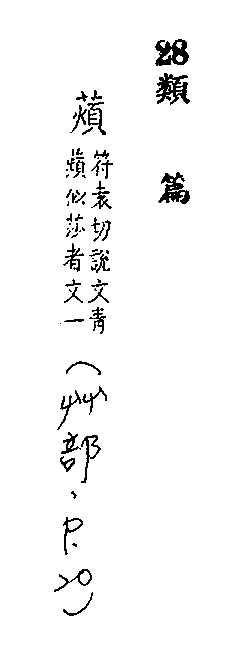 28類篇
薠
符袁切說文青
薠似莎者文一
（艸部、P.20）